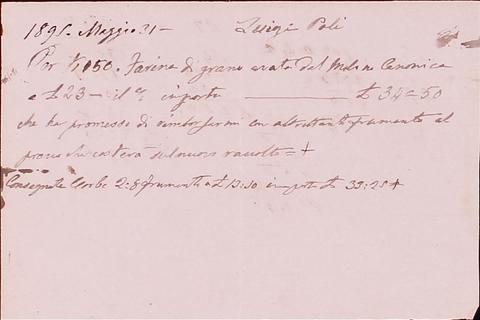 1895 Maggio 31 - Luigi Poli
Per ℔ 150. Farina di grano avuta dal Molino Canonica
a £ 23 - il q. importa £ 34=50
che ha promesso di rimborsarmi in altrettanto frumento al
prezzo che costerà sul nuovo raccolto = +
Consegnate Corbe 2:8 frumento a £ 13:30 importa £ 33:25 +